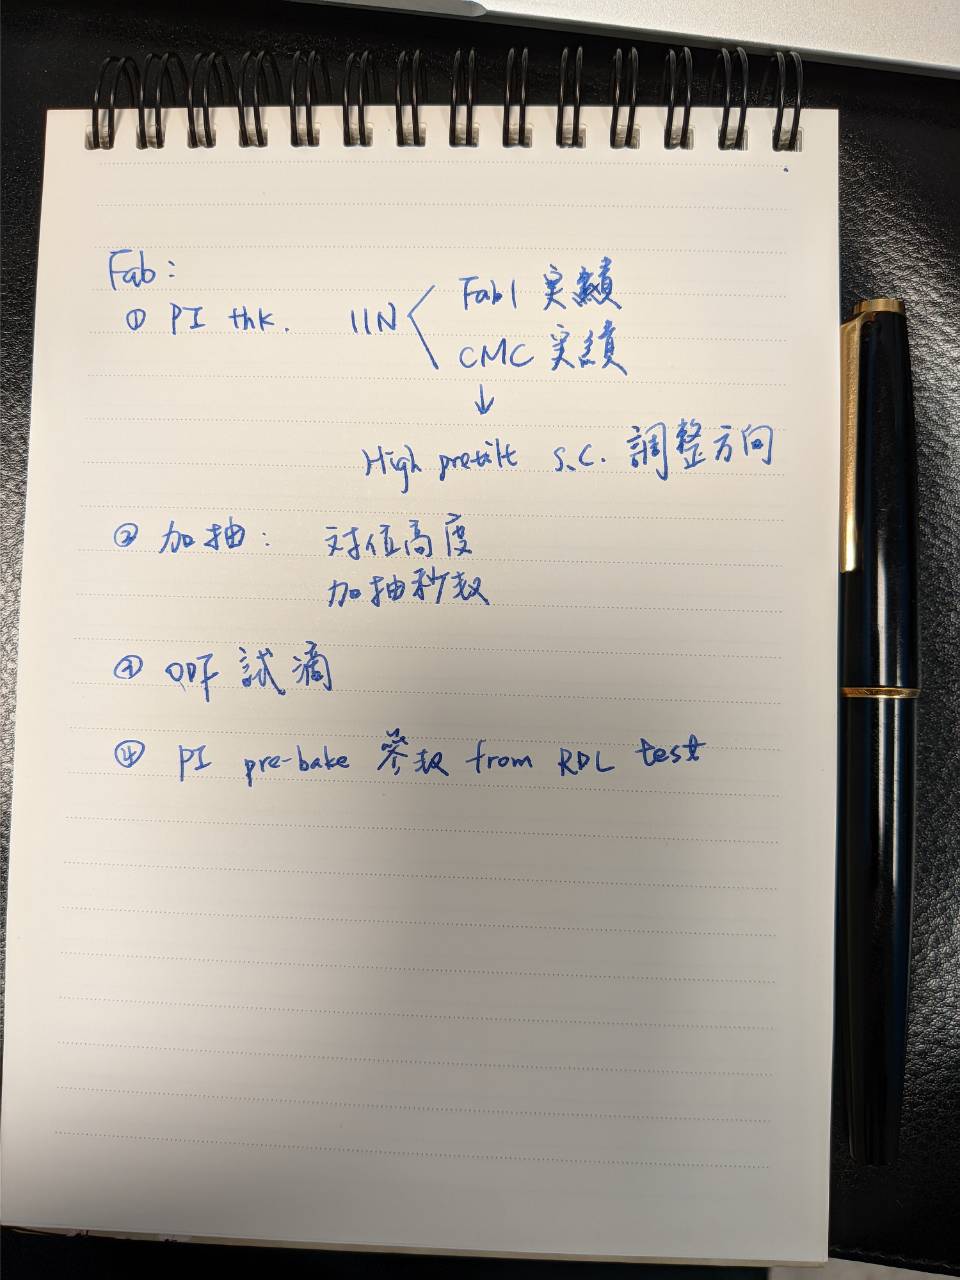 Fab:
① PI thk. 11N Fab1 実績
CMC 実績
↓
High pretilt S.C. 調整方向
② 加抽: 対位高度
加抽秒数
③ ODF 試滴
④ PI pre-bake 參数 from RDL test